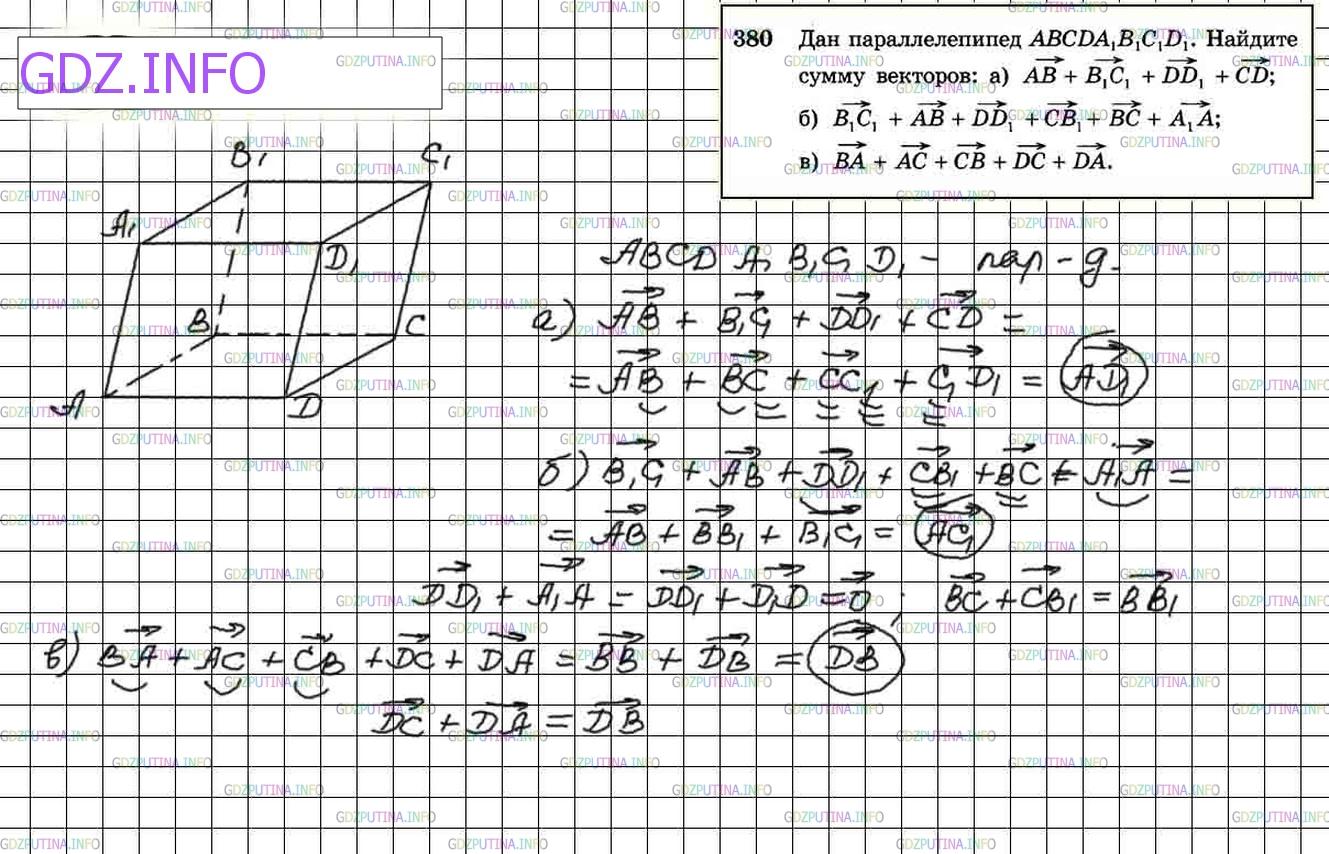 GDZ.INFO
380 Дан параллелепипед ABCDA₁B₁C₁D₁. Найдите
сумму векторов: а) AB + B₁C₁ + DD₁ + CD;
б) B₁C₁ + AB + DD₁ + CB₁ + BC + A₁A;
в) BA + AC + CB + DC + DA.
B₁ C₁
A₁ D₁
B₁ C
A D
ABCD A₁ B₁ C₁ D₁ – пар-д.
а) AB + B₁C₁ + DD₁ + CD =
= AB + BC + CC₁ + C₁D₁ = AD₁
б) B₁C₁ + AB + DD₁ + CB₁ + BC + A₁A =
= AB + BB₁ + B₁C₁ = AC₁
DD₁ + A₁A = DD₁ + D₁D = 0; BC + CB₁ = BB₁
в) BA + AC + CB + DC + DA = BB + DB = DB
DC + DA = DB
GDZPUTINA.INFO